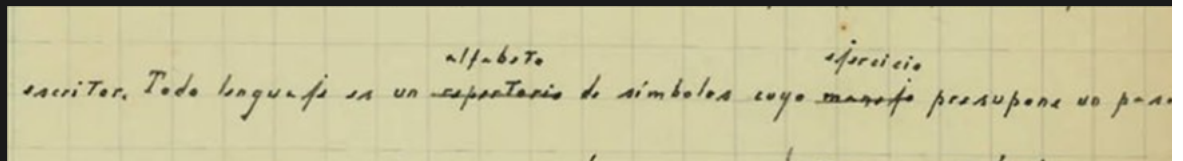 alfabeto ejercicio
escritor. Todo lenguaje es un repertorio de símbolos cuyo manejo presupone un pasa